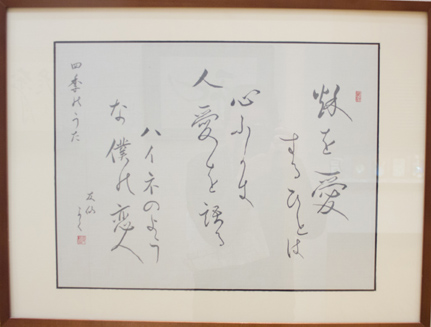 秋を愛
するひとは
心ふかき
人 愛を語る
ハイネのよう
な僕の恋人
四季のうた